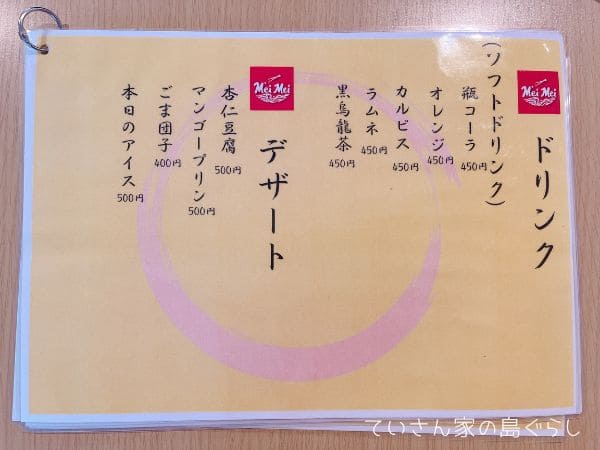 Mei Mei
ドリンク
(ソフトドリンク)
瓶コーラ 450円
オレンジ 450円
カルピス 450円
ラムネ 450円
黒烏龍茶 450円
Mei Mei
デザート
杏仁豆腐 500円
マンゴープリン 500円
ごま団子 400円
本日のアイス 500円
ていさん家の島ぐらし